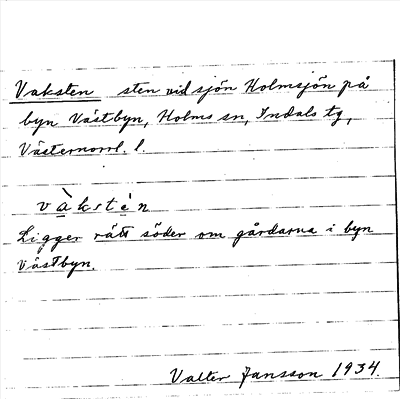 Vaksten sten vid sjön Holmsjön på
byn Västbyn, Holms sn, Indals tg,
Västernorrl. l.
vàkste̍n
Ligger rätt söder om gårdarna i byn
Västbyn.
Valter Jansson 1934.